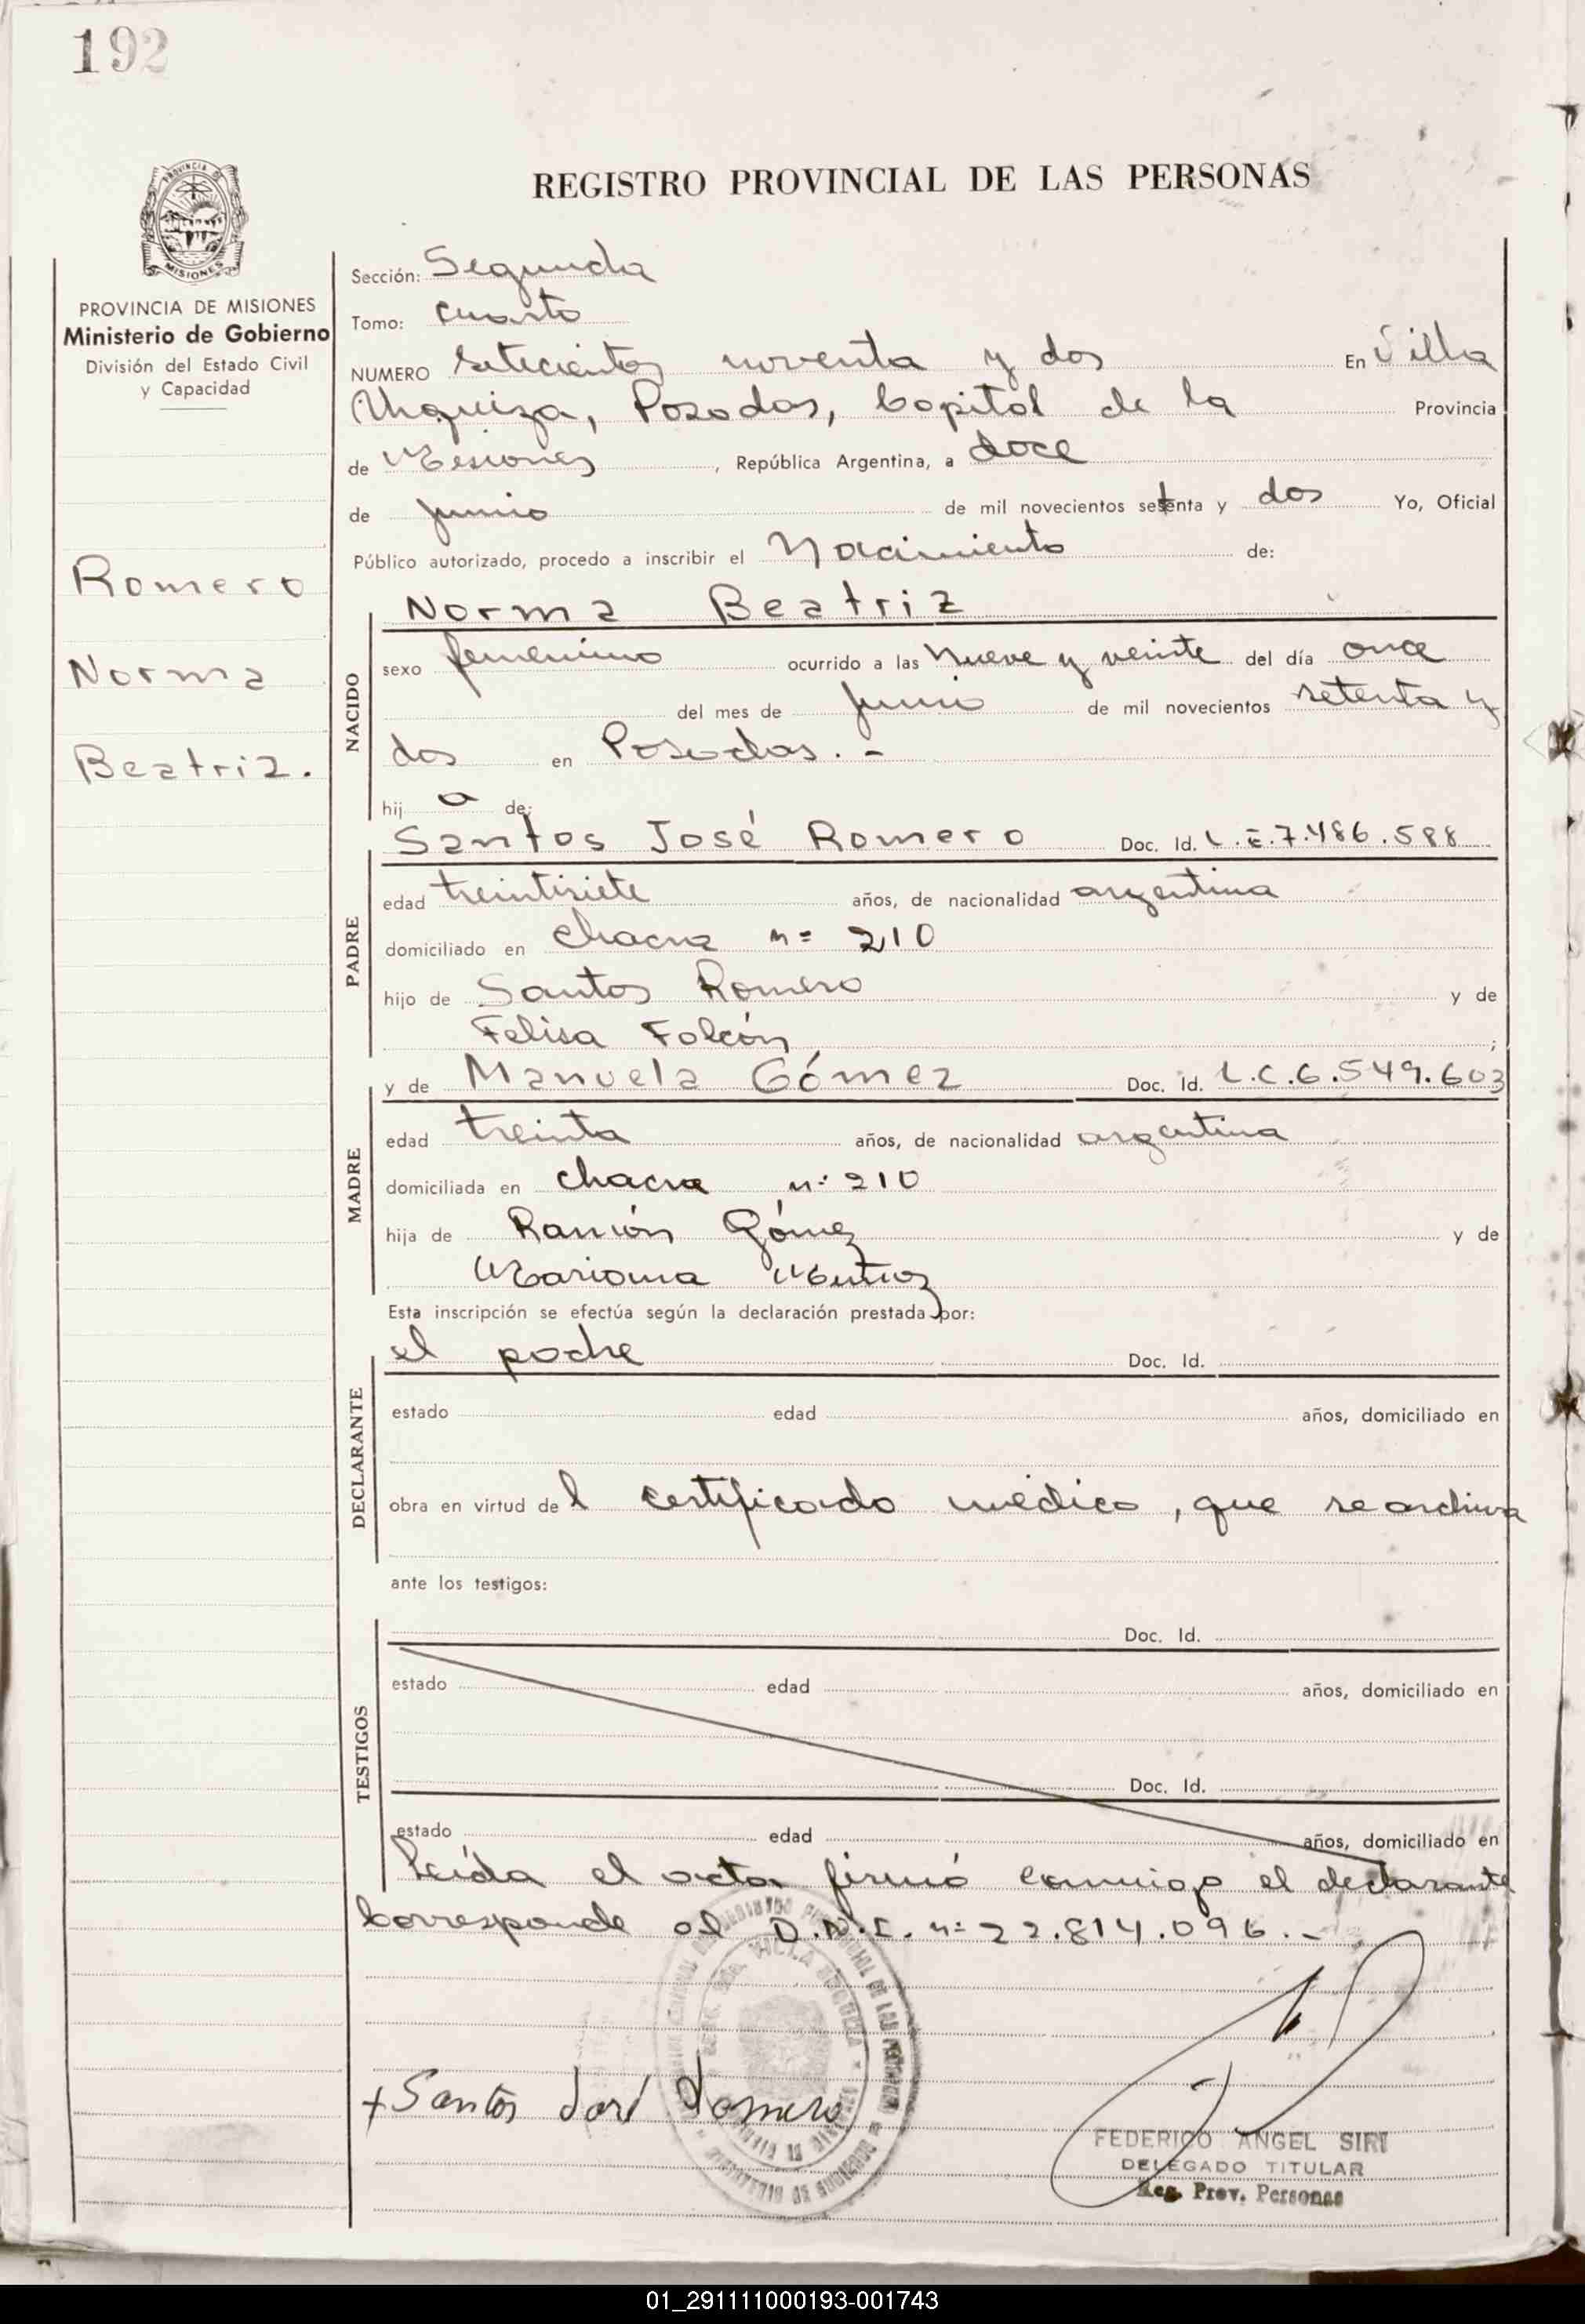 192
REGISTRO PROVINCIAL DE LAS PERSONAS
PROVINCIA DE MISIONES
Ministerio de Gobierno
División del Estado Civil
y Capacidad
Romero
Norma
Beatriz.
Sección: Segunda
Tomo: Cuarto
NUMERO setecientos noventa y dos En Villa
Urquiza, Posadas, Capital de la Provincia
de Misiones, República Argentina, a doce
de junio de mil novecientos setenta y dos Yo, Oficial
Público autorizado, procedo a inscribir el Nacimiento de:
NACIDO
Norma Beatriz
sexo femenino ocurrido a las nueve y veinte del día once
del mes de junio de mil novecientos setenta y
dos en Posadas.-
hij a de:
PADRE
Santos José Romero Doc. Id. L.E.7.486.588
edad treintisiete años, de nacionalidad argentina
domiciliado en chacra nº 210
hijo de Santos Romero y de
Felisa Falcón ;
MADRE
y de Manuela Gómez Doc. Id. L.C.6.549.603
edad treinta años, de nacionalidad argentina
domiciliada en chacra nº 210
hija de Ramón Gómez y de
Mariana
Esta inscripción se efectúa según la declaración prestada por:
DECLARANTE
el padre Doc. Id.
estado edad años, domiciliado en
obra en virtud del certificado médico, que se archiva
ante los testigos:
TESTIGOS
Doc. Id.
estado edad años, domiciliado en
Doc. Id.
estado edad años, domiciliado en
Leída el acta firmó conmigo el declarante
Corresponde al D.N.I. nº 22.814.096.-
+Santos José Romero
FEDERICO ANGEL SIRI
DELEGADO TITULAR
Reg. Prov. Personas
01_291111000193-001743